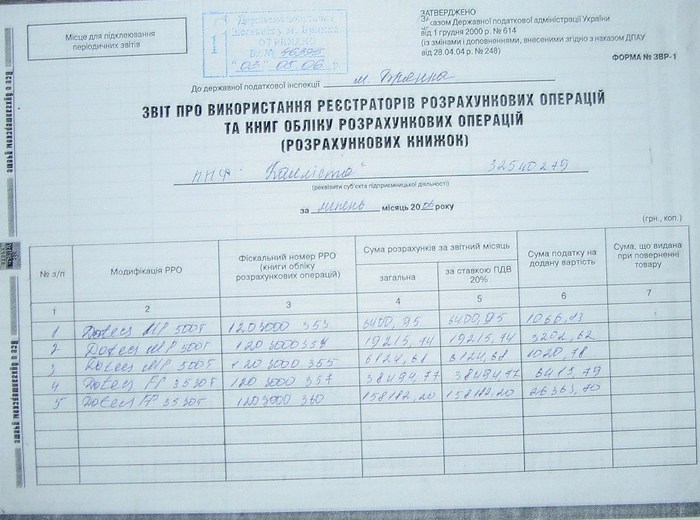 Місце для підклеювання
періодичних звітів
ЗАТВЕРДЖЕНО
казом Державної податкової адміністрації України
від 1 грудня 2000 р. № 614
(із змінами і доповненнями, внесеними згідно з наказом ДПАУ
від 28.04.04 р. № 248)
ФОРМА № ЗВР-1
До державної податкової інспекції м.
ЗВІТ ПРО ВИКОРИСТАННЯ РЕЄСТРАТОРІВ РОЗРАХУНКОВИХ ОПЕРАЦІЙ
ТА КНИГ ОБЛІКУ РОЗРАХУНКОВИХ ОПЕРАЦІЙ
(РОЗРАХУНКОВИХ КНИЖОК)
32540279
(реквізити суб'єкта підприємницької діяльності)
за липень місяць 2006 року
(грн., коп.)
№ з/п
Модифікація РРО
Фіскальний номер РРО
(книги обліку
розрахункових операцій)
Сума розрахунків за звітний місяць
загальна
за ставкою ПДВ
20%
Сума податку на
додану вартість
Сума, що видана
при поверненні
товару
1 2 3 4 5 6 7
1 Datecs MP 500T 1203000 353 6400,95 6400,95
2 Datecs MP 500T 1203000354 19215,74 19215,74 3202,62
3 Datecs MP 500T 1203000 355 6124,68 6124,68 1020,78
4 Datecs FP 3530T 1203000 357 38494,77 38494,77
5 Datecs FP 3530T 1203000 360 158182,20 158182,20 26363,70
Все о бухгалтерском учете
Все о бухгалтерском учете